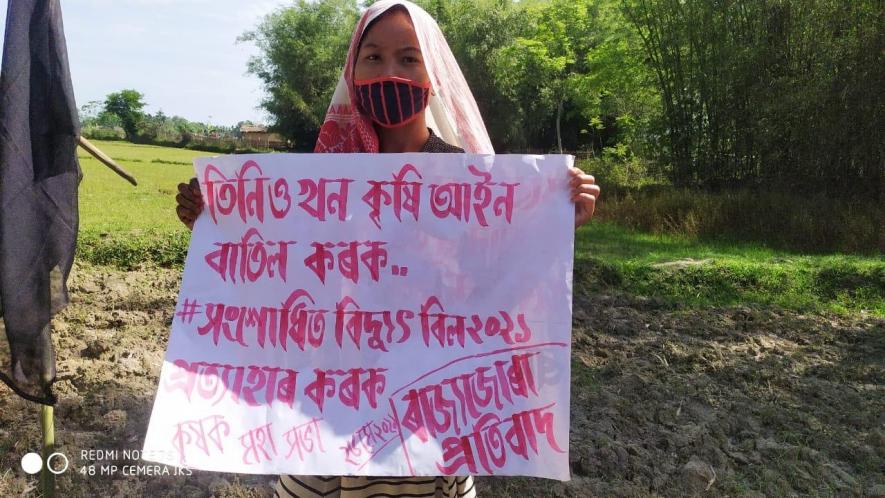 তিনিও খন কৃষি আইন
বাতিল কৰক..
#সংশোধিত বিদ্যুৎ বিল ২০২১
প্ৰত্যাহাৰ কৰক
কৃষক মহা সভা
২৬ মে' ২০২১
ৰাজ্যজোৰা
প্ৰতিবাদ
REDMI NOTE
48 MP CAMERA